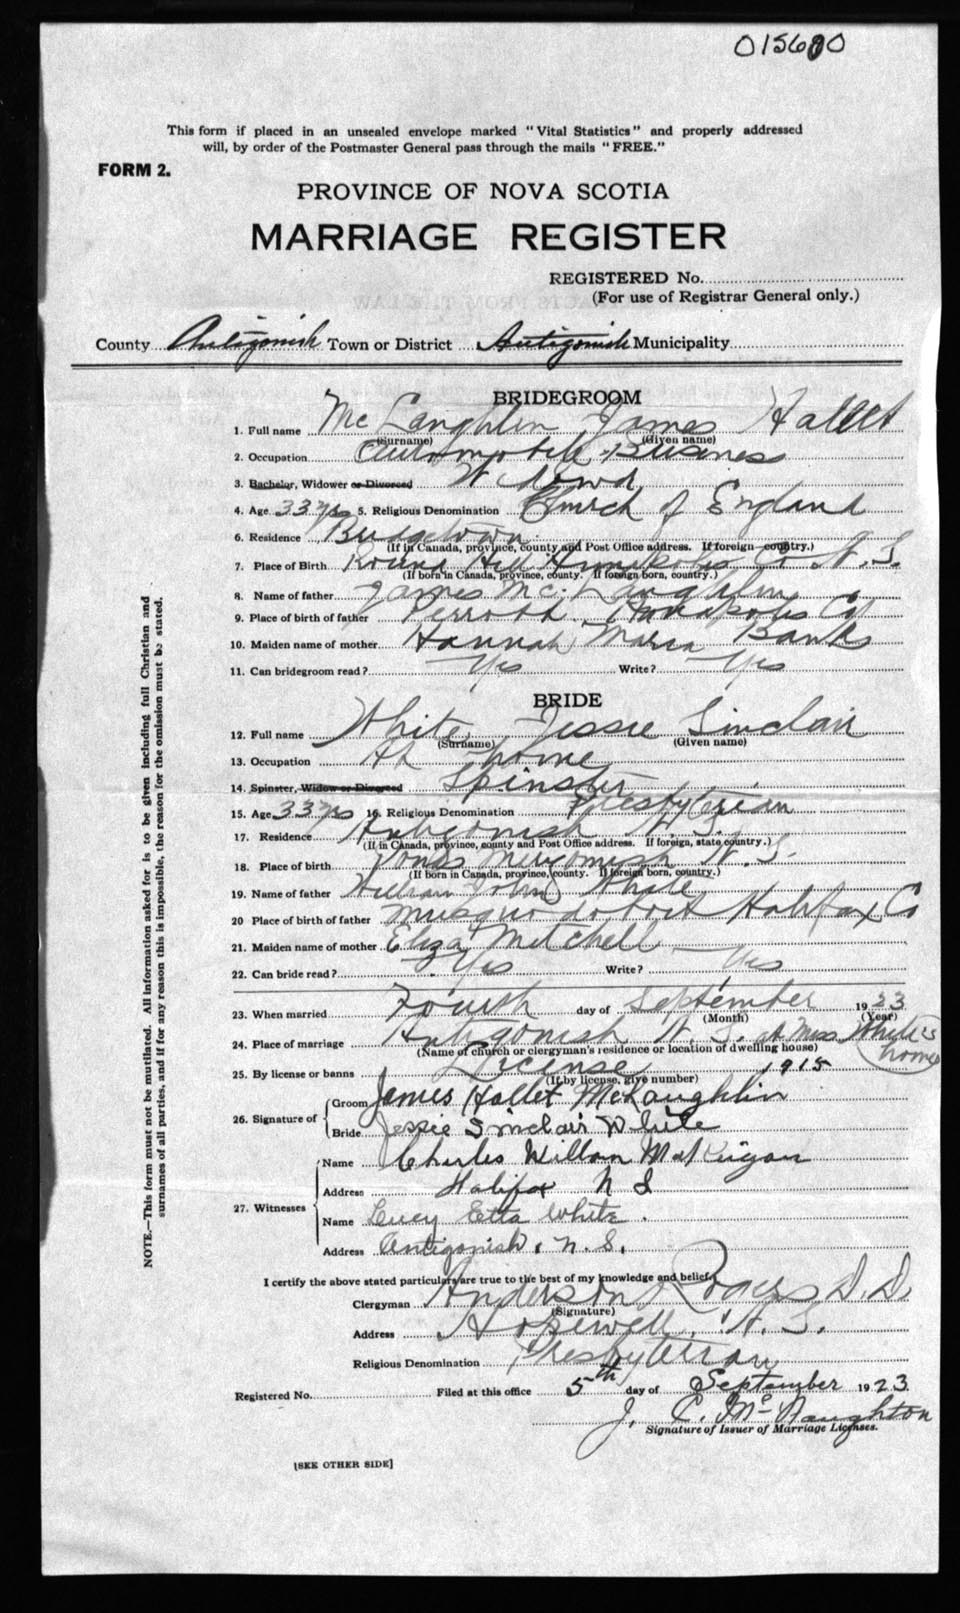 015680
This form if placed in an unsealed envelope marked "Vital Statistics" and properly addressed
will, by order of the Postmaster General pass through the mails "FREE."
FORM 2.
PROVINCE OF NOVA SCOTIA
MARRIAGE REGISTER
REGISTERED No.
(For use of Registrar General only.)
County Antigonish Town or District Antigonish Municipality
BRIDEGROOM
1. Full name McLaughlin James Hallet
(Surname) (Given name)
2. Occupation Automobile Business
3. Bachelor, Widower or Divorced Widowd
4. Age 33 yrs 5. Religious Denomination Church of England
6. Residence Bridgetown
(If in Canada, province, county and Post Office address. If foreign country.)
7. Place of Birth Round Hill Annapolis Co N. S.
(If born in Canada, province, county. If foreign born, country.)
8. Name of father James McLaughlin
9. Place of birth of father Perrott Annapolis Co
10. Maiden name of mother Hannah Maria Banks
11. Can bridegroom read? Yes Write? Yes
BRIDE
12. Full name White Jessie Sinclair
(Surname) (Given name)
13. Occupation At home
14. Spinster, Widow or Divorced Spinster
15. Age 33 yrs 16. Religious Denomination Presbyterian
17. Residence Antigonish N. S.
(If in Canada, province, county and Post Office address. If foreign, state country.)
18. Place of birth Merigomish N. S.
(If born in Canada, province, county. If foreign born, country.)
19. Name of father William John White
20 Place of birth of father Musquodoboit Halifax Co
21. Maiden name of mother Eliza Mitchell
22. Can bride read? Yes Write? Yes
23. When married Fourth day of September 1923
(Month) (Year)
24. Place of marriage Antigonish N. S. at Miss White's home
(Name of church or clergyman's residence or location of dwelling house)
25. By license or banns License 1915
(If by license, give number)
26. Signature of
Groom James Hallet McLaughlin
Bride Jessie Sinclair White
27. Witnesses
Name Charles William
Address Halifax N S
Name Lucy Etta White.
Address Antigonish, N. S.
I certify the above stated particulars are true to the best of my knowledge and belief.
Clergyman Anderson Rogers D. D.
(Signature)
Address Hopewell, N. S.
Religious Denomination Presbyterian
Registered No. Filed at this office 5th day of September 1923
J. C. McNaughton
Signature of Issuer of Marriage Licenses.
[SEE OTHER SIDE]
NOTE.—This form must not be mutilated. All information asked for is to be given including full Christian and
surnames of all parties, and if for any reason this is impossible, the reason for the omission must be stated.